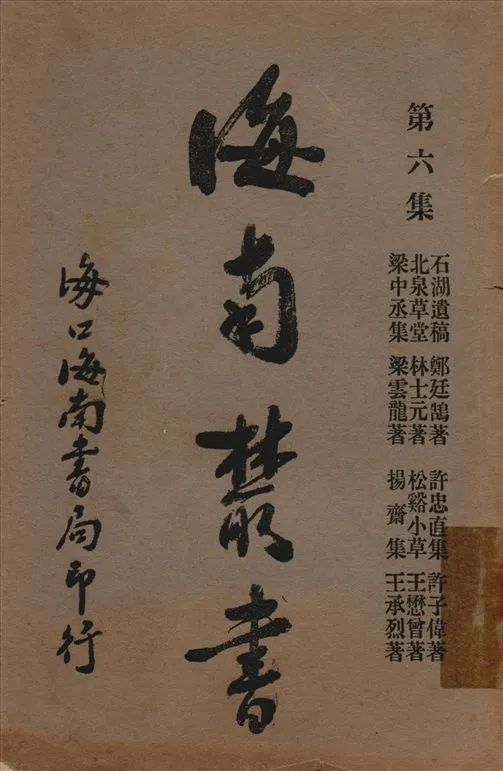 第六集
石湖遺稿 鄭廷鵠著 許忠直集 許子偉著
北泉草堂 林士元著 松谿小草 王懋曾著
梁中丞集 梁雲龍著 揚齋集 王承烈著
海南叢書
海口海南書局印行